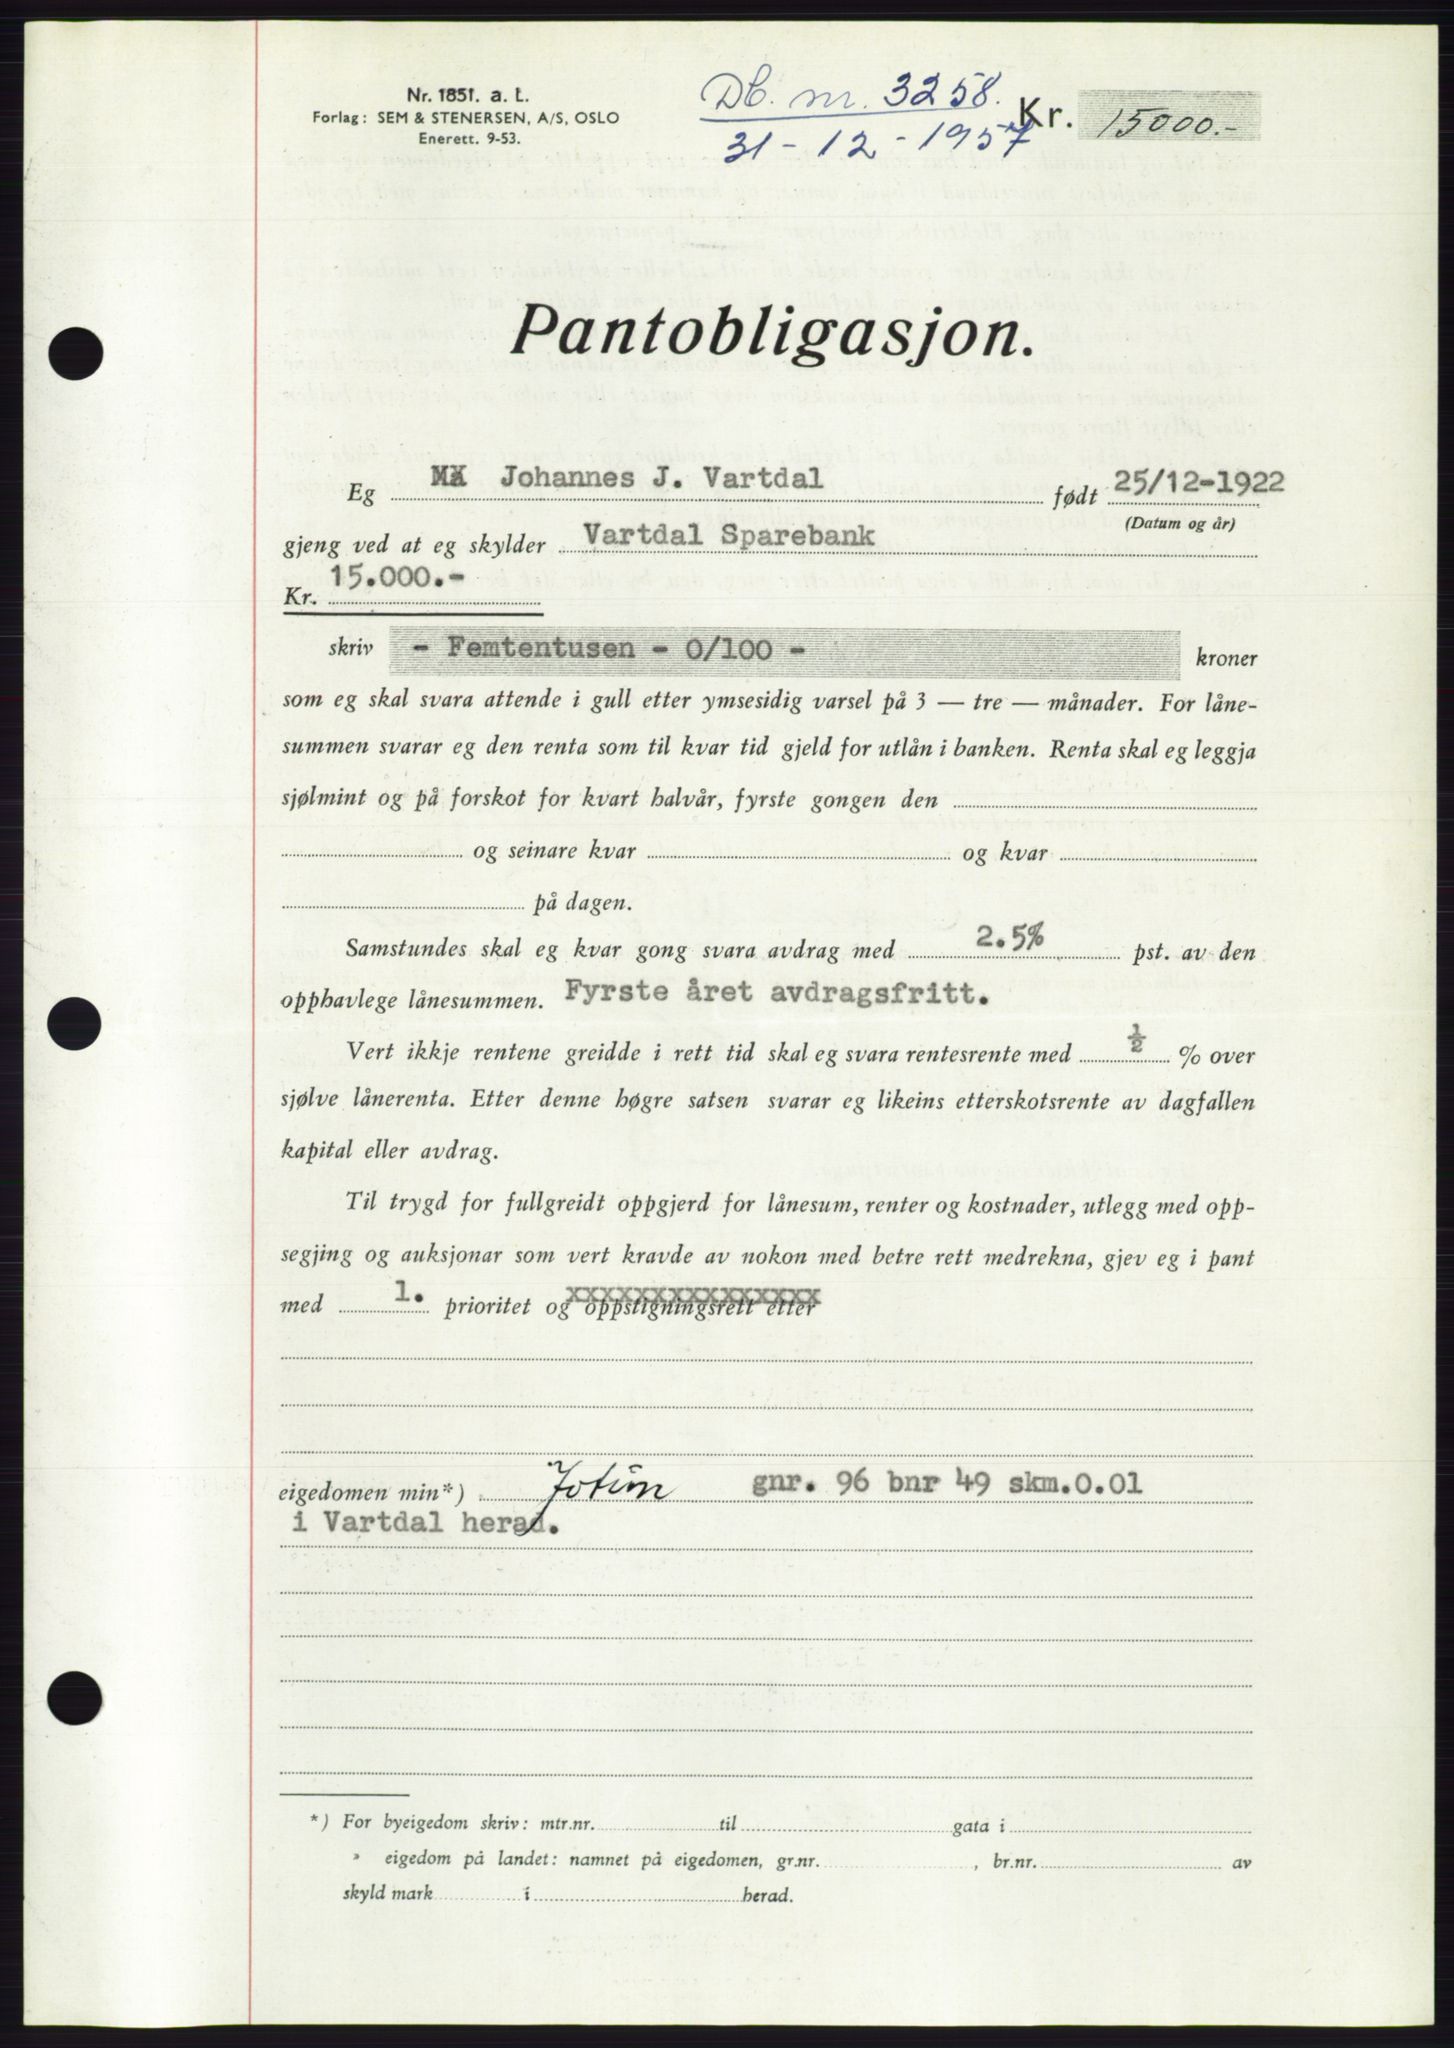 Nr. 1851. a. L.
Forlag: SEM & STENERSEN, A/S, OSLO
Enerett. 9-53.
Db. nr. 3258.
31-12-1957
Kr. 15000.-
Pantobligasjon.
Eg Johannes J. Vartdal født 25/12-1922
(Datum og år)
gjeng ved at eg skylder Vartdal Sparebank
Kr. 15.000.-
skriv - Femtentusen - 0/100 - kroner
som eg skal svara attende i gull etter ymsesidig varsel på 3 — tre — månader. For låne-
summen svarar eg den renta som til kvar tid gjeld for utlån i banken. Renta skal eg leggja
sjølmint og på forskot for kvart halvår, fyrste gongen den
og seinare kvar og kvar
på dagen.
Samstundes skal eg kvar gong svara avdrag med 2.5% pst. av den
opphavlege lånesummen. Fyrste året avdragsfritt.
Vert ikkje rentene greidde i rett tid skal eg svara rentesrente med ½ % over
sjølve lånerenta. Etter denne høgre satsen svarar eg likeins etterskotsrente av dagfallen
kapital eller avdrag.
Til trygd for fullgreidt oppgjerd for lånesum, renter og kostnader, utlegg med opp-
segjing og auksjonar som vert kravde av nokon med betre rett medrekna, gjev eg i pant
med 1. prioritet og oppstigningsrett etter
eigedomen min*) Jotun gnr. 96 bnr 49 skm.0.01
i Vartdal herad.
*) For byeigedom skriv: mtr.nr. til gata i
» eigedom på landet: namnet på eigedomen, gr.nr. , br.nr. av
skyld mark i herad.